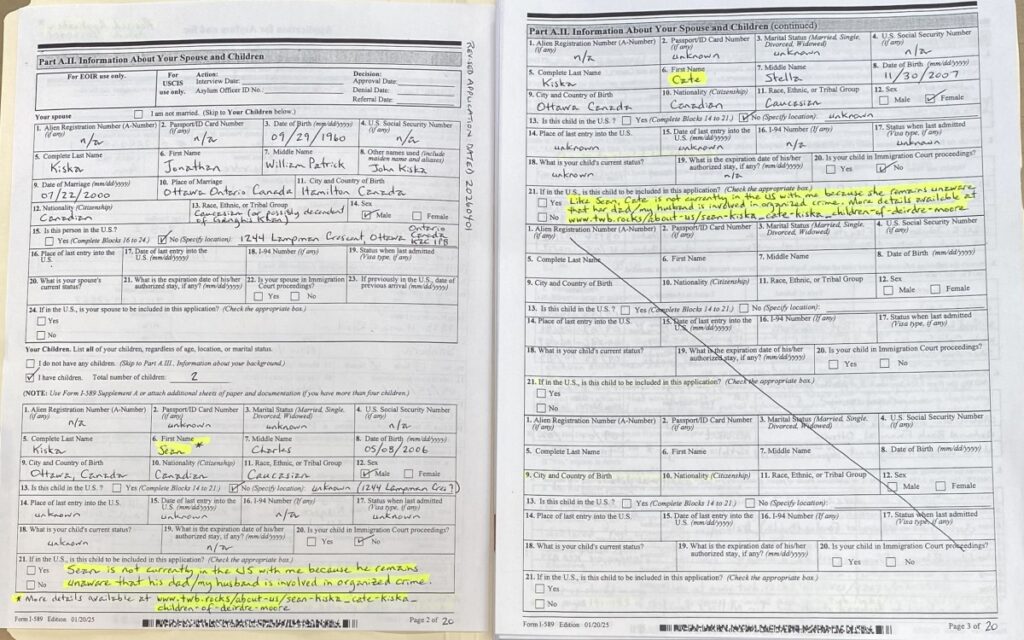 Part A.II. Information About Your Spouse and Children
For EOIR use only.
For USCIS use only.
Action:
Interview Date:
Asylum Officer ID No.:
Decision:
Approval Date:
Denial Date:
Referral Date:
REVISED APPLICATION DATED 20260401
Your spouse
I am not married. (Skip to Your Children below.)
1. Alien Registration Number (A-Number) (if any)
n/a
2. Passport/ID Card Number (if any)
n/a
3. Date of Birth (mm/dd/yyyy)
09/29/1960
4. U.S. Social Security Number (if any)
n/a
5. Complete Last Name
Kiska
6. First Name
Jonathan
7. Middle Name
William Patrick
8. Other names used (include maiden name and aliases)
John Kiska
9. Date of Marriage (mm/dd/yyyy)
07/22/2000
10. Place of Marriage
Ottawa Ontario Canada
11. City and Country of Birth
Hamilton Canada
12. Nationality (Citizenship)
Canadian
13. Race, Ethnic, or Tribal Group
Caucasian (or possibly decendent of Genghis Khan)
14. Sex
Male
Female
15. Is this person in the U.S.?
Yes (Complete Blocks 16 to 24.)
No (Specify location):
1244 Lampman Crescent, Ottawa Ontario Canada K2C 1P8
16. Place of last entry into the U.S.
17. Date of last entry into the U.S. (mm/dd/yyyy)
18. I-94 Number (if any)
19. Status when last admitted (Visa type, if any)
20. What is your spouse's current status?
21. What is the expiration date of his/her authorized stay, if any? (mm/dd/yyyy)
22. Is your spouse in Immigration Court proceedings?
Yes
No
23. If previously in the U.S., date of previous arrival (mm/dd/yyyy)
24. If in the U.S., is your spouse to be included in this application? (Check the appropriate box.)
Yes
No
Your Children. List all of your children, regardless of age, location, or marital status.
I do not have any children. (Skip to Part A.III., Information about your background.)
I have children. Total number of children: 2
(NOTE: Use Form I-589 Supplement A or attach additional sheets of paper and documentation if you have more than four children.)
1. Alien Registration Number (A-Number) (if any)
n/a
2. Passport/ID Card Number (if any)
unknown
3. Marital Status (Married, Single, Divorced, Widowed)
unknown
4. U.S. Social Security Number (if any)
n/a
5. Complete Last Name
Kiska
6. First Name
Sean *
7. Middle Name
Charles
8. Date of Birth (mm/dd/yyyy)
05/08/2006
9. City and Country of Birth
Ottawa, Canada
10. Nationality (Citizenship)
Canadian
11. Race, Ethnic, or Tribal Group
Caucasian
12. Sex
Male
Female
13. Is this child in the U.S.?
Yes (Complete Blocks 14 to 21.)
No (Specify location):
unknown (1244 Lampman Cres?)
14. Place of last entry into the U.S.
unknown
15. Date of last entry into the U.S. (mm/dd/yyyy)
unknown
16. I-94 Number (If any)
n/a
17. Status when last admitted (Visa type, if any)
unknown
18. What is your child's current status?
unknown
19. What is the expiration date of his/her authorized stay, if any? (mm/dd/yyyy)
n/a
20. Is your child in Immigration Court proceedings?
Yes
No
21. If in the U.S., is this child to be included in this application? (Check the appropriate box.)
Yes
No
Sean is not currently in the US with me because he remains
unaware that his dad/my husband is involved in organized crime.
* More details available at www.twb.rocks/about-us/sean-kiska_cate-kiska_
children-of-deirdre-moore
Form I-589 Edition 01/20/25
Page 2 of 20
Part A.II. Information About Your Spouse and Children (continued)
1. Alien Registration Number (A-Number) (if any)
n/a
2. Passport/ID Card Number (if any)
unknown
3. Marital Status (Married, Single, Divorced, Widowed)
unknown
4. U.S. Social Security Number (if any)
n/a
5. Complete Last Name
Kiska
6. First Name
Cate
7. Middle Name
Stella
8. Date of Birth (mm/dd/yyyy)
11/30/2007
9. City and Country of Birth
Ottawa Canada
10. Nationality (Citizenship)
Canadian
11. Race, Ethnic, or Tribal Group
Caucasian
12. Sex
Male
Female
13. Is this child in the U.S. ?
Yes (Complete Blocks 14 to 21.)
No (Specify location):
unknown
14. Place of last entry into the U.S.
unknown
15. Date of last entry into the U.S. (mm/dd/yyyy)
unknown
16. I-94 Number (If any)
n/a
17. Status when last admitted (Visa type, if any)
unknown
18. What is your child's current status?
unknown
19. What is the expiration date of his/her authorized stay, if any? (mm/dd/yyyy)
n/a
20. Is your child in Immigration Court proceedings?
Yes
No
21. If in the U.S., is this child to be included in this application? (Check the appropriate box.)
Yes
No
Like Sean, Cate is not currently in the US with me because she remains unaware
that her dad/my husband is involved in organized crime. More details available at
www.twb.rocks/about-us/sean-kiska_cate-kiska_children-of-deirdre-moore
1. Alien Registration Number (A-Number) (if any)
2. Passport/ID Card Number (if any)
3. Marital Status (Married, Single, Divorced, Widowed)
4. U.S. Social Security Number (if any)
5. Complete Last Name
6. First Name
7. Middle Name
8. Date of Birth (mm/dd/yyyy)
9. City and Country of Birth
10. Nationality (Citizenship)
11. Race, Ethnic, or Tribal Group
12. Sex
Male
Female
13. Is this child in the U.S. ?
Yes (Complete Blocks 14 to 21.)
No (Specify location):
14. Place of last entry into the U.S.
15. Date of last entry into the U.S. (mm/dd/yyyy)
16. I-94 Number (If any)
17. Status when last admitted (Visa type, if any)
18. What is your child's current status?
19. What is the expiration date of his/her authorized stay, if any? (mm/dd/yyyy)
20. Is your child in Immigration Court proceedings?
Yes
No
21. If in the U.S., is this child to be included in this application? (Check the appropriate box.)
Yes
No
1. Alien Registration Number (A-Number) (if any)
2. Passport/ID Card Number (if any)
3. Marital Status (Married, Single, Divorced, Widowed)
4. U.S. Social Security Number (if any)
5. Complete Last Name
6. First Name
7. Middle Name
8. Date of Birth (mm/dd/yyyy)
9. City and Country of Birth
10. Nationality (Citizenship)
11. Race, Ethnic, or Tribal Group
12. Sex
Male
Female
13. Is this child in the U.S. ?
Yes (Complete Blocks 14 to 21.)
No (Specify location):
14. Place of last entry into the U.S.
15. Date of last entry into the U.S. (mm/dd/yyyy)
16. I-94 Number (If any)
17. Status when last admitted (Visa type, if any)
18. What is your child's current status?
19. What is the expiration date of his/her authorized stay, if any? (mm/dd/yyyy)
20. Is your child in Immigration Court proceedings?
Yes
No
21. If in the U.S., is this child to be included in this application? (Check the appropriate box.)
Yes
No
Form I-589 Edition 01/20/25
Page 3 of 20